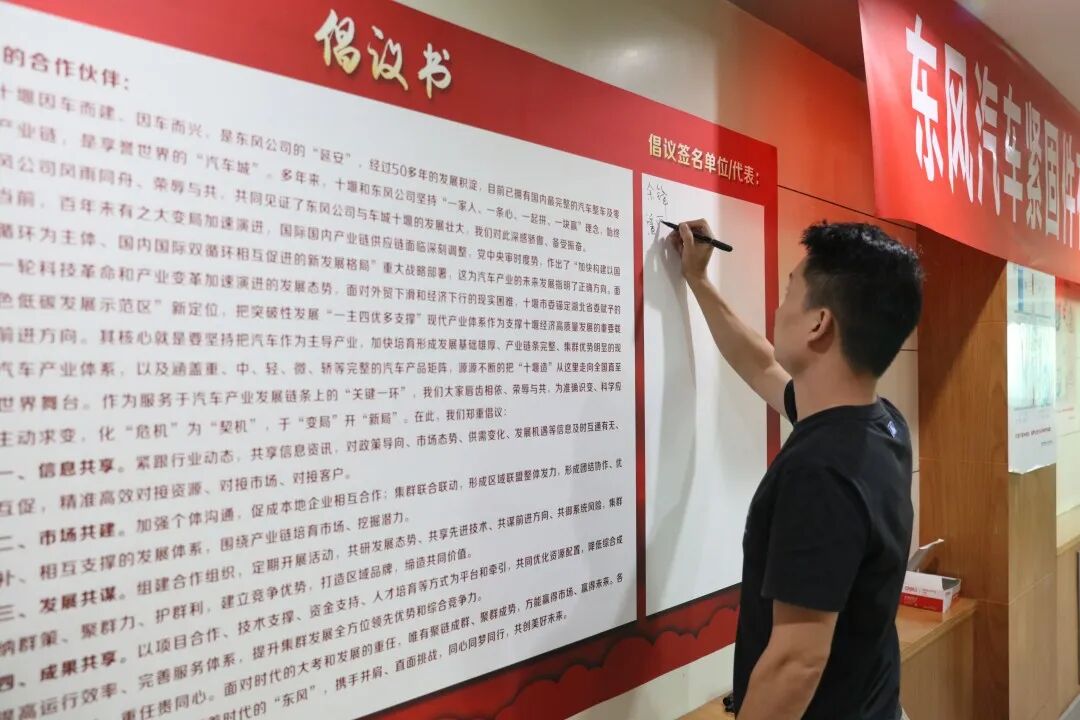 倡议书
的合作伙伴：
十堰因车而建、因车而兴，是东风公司的“延安”，经过50多年的发展积淀，目前已拥有国内最完整的汽车整车及零
产业链，是享誉世界的“汽车城”。多年来，十堰和东风公司坚持“一家人、一条心、一起拼、一块赢”理念，始终
风公司风雨同舟、荣辱与共，共同见证了东风公司与车城十堰的发展壮大，我们对此深感骄傲、备受振奋。
当前，百年未有之大变局加速演进，国际国内产业链供应链面临深刻调整，党中央审时度势，作出了“加快构建以国
循环为主体、国内国际双循环相互促进的新发展格局”重大战略部署，这为汽车产业的未来发展指明了正确方向，面
一轮科技革命和产业变革加速演进的发展态势，面对外贸下滑和经济下行的现实困难，十堰市委锚定湖北省委赋予的
色低碳发展示范区”新定位，把突破性发展“一主四优多支撑”现代产业体系作为支撑十堰经济高质量发展的重要载
前进方向。其核心就是要坚持把汽车作为主导产业，加快培育形成发展基础雄厚、产业链条完整、集群优势明显的现
汽车产业体系，以及涵盖重、中、轻、微、轿等完整的汽车产品矩阵，源源不断的把“十堰造”从这里走向全国直至
世界舞台。作为服务于汽车产业发展链条上的“关键一环”，我们大家唇齿相依、荣辱与共，为准确识变、科学应
主动求变，化“危机”为“契机”，于“变局”开“新局”。在此，我们郑重倡议：
一、信息共享。紧跟行业动态，共享信息资讯，对政策导向、市场态势、供需变化、发展机遇等信息及时互通有无、
互促，精准高效对接资源、对接市场、对接客户。
二、市场共建。加强个体沟通，促成本地企业相互合作；集群联合联动，形成区域联盟整体发力，形成团结协作、优
补、相互支撑的发展体系，围绕产业链培育市场、挖掘潜力。
三、发展共谋。组建合作组织，定期开展活动，共研发展态势、共享先进技术、共谋前进方向、共御系统风险，集群
纳群策、聚群力、护群利，建立竞争优势，打造区域品牌，缔造共同价值。
四、成果共享。以项目合作、技术支撑、资金支持、人才培育等方式为平台和牵引，共同优化资源配置，降低综合成
提高运行效率、完善服务体系，提升集群发展全方位领先优势和综合竞争力。
重任贵同心。面对时代的大考和发展的重任，唯有聚链成群、聚群成势，方能赢得市场、赢得未来。各
时代的“东风”，携手并肩、直面挑战，同心同梦同行，共创美好未来。
倡议签名单位/代表：
东风汽车紧固件